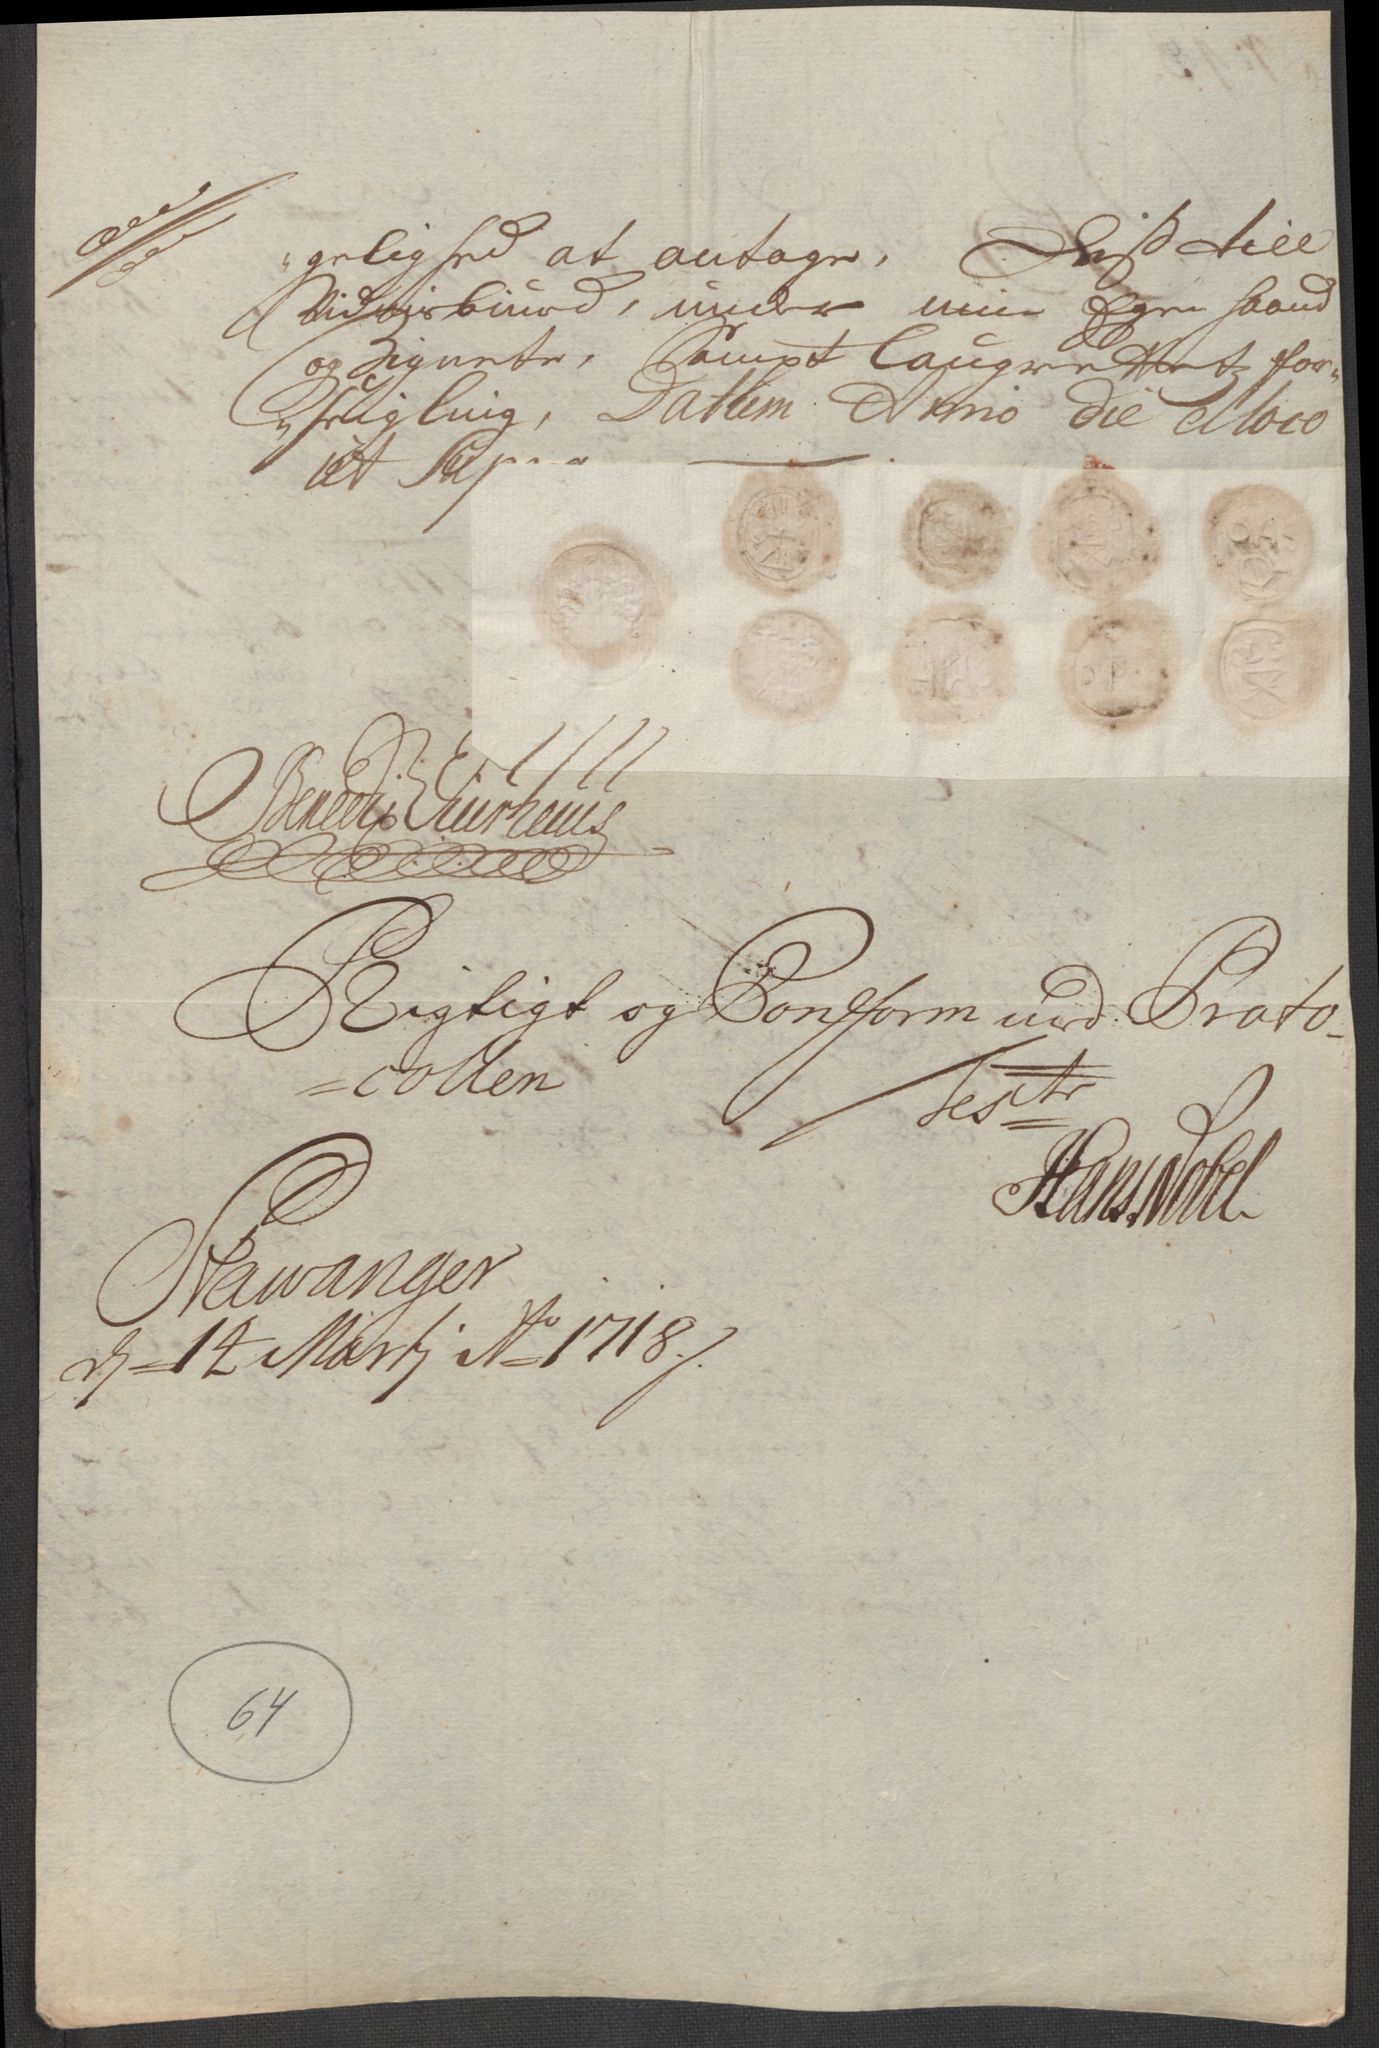 gelighed at antage, Diß till
Vidnisbiurd, under min Egen haand
og Zignete, Sampt Laugrettets for-
seigling, Datum Anno die et loco
ut Supra
Rigtigt og Conform med Proto-
=collen
Test:
Hans Nobel
Stawanger
d. 14 Martij Ao 1718.
64